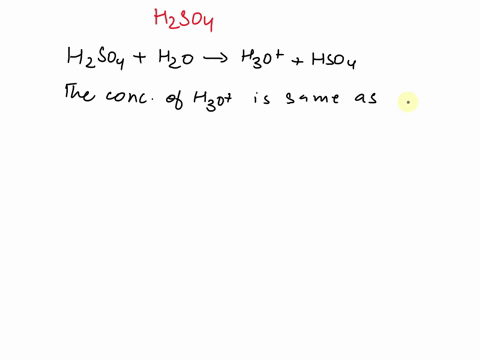 H₂SO₄
H₂SO₄ + H₂O → H₃O⁺ + HSO₄
The conc. of H₃O⁺ is same as